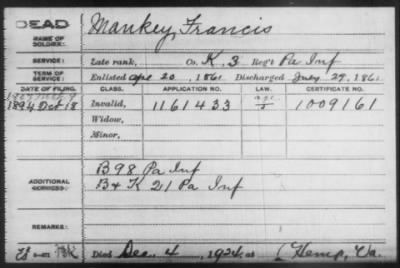 DEAD Mankey, Francis
NAME OF
SOLDIER:
SERVICE: Late rank, Co. K, 3 Reg't Pa Inf
TERM OF
SERVICE: Enlisted Apr 20, 1861 Discharged July 29, 1861
DATE OF FILING. CLASS. APPLICATION NO. LAW. CERTIFICATE NO.
1894 Oct 18 Invalid, 1161433 1009161
Widow,
Minor,
ADDITIONAL
SERVICES: B 98 Pa Inf
B & K 21 Pa Inf
REMARKS:
Died Dec. 4, 1924, at Hemp, Va.